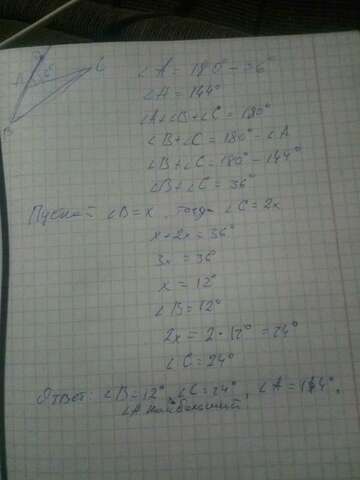 A 36° C
B
∠A = 180° - 36°
∠A = 144°
∠A + ∠B + ∠C = 180°
∠B + ∠C = 180° - ∠A
∠B + ∠C = 180° - 144°
∠B + ∠C = 36°
Пусть ∠B = x, тогда ∠C = 2x
x + 2x = 36°
3x = 36°
x = 12°
∠B = 12°
2x = 2 · 12° = 24°
∠C = 24°
Ответ: ∠B = 12°, ∠C = 24°, ∠A = 144°,
∠A наибольший